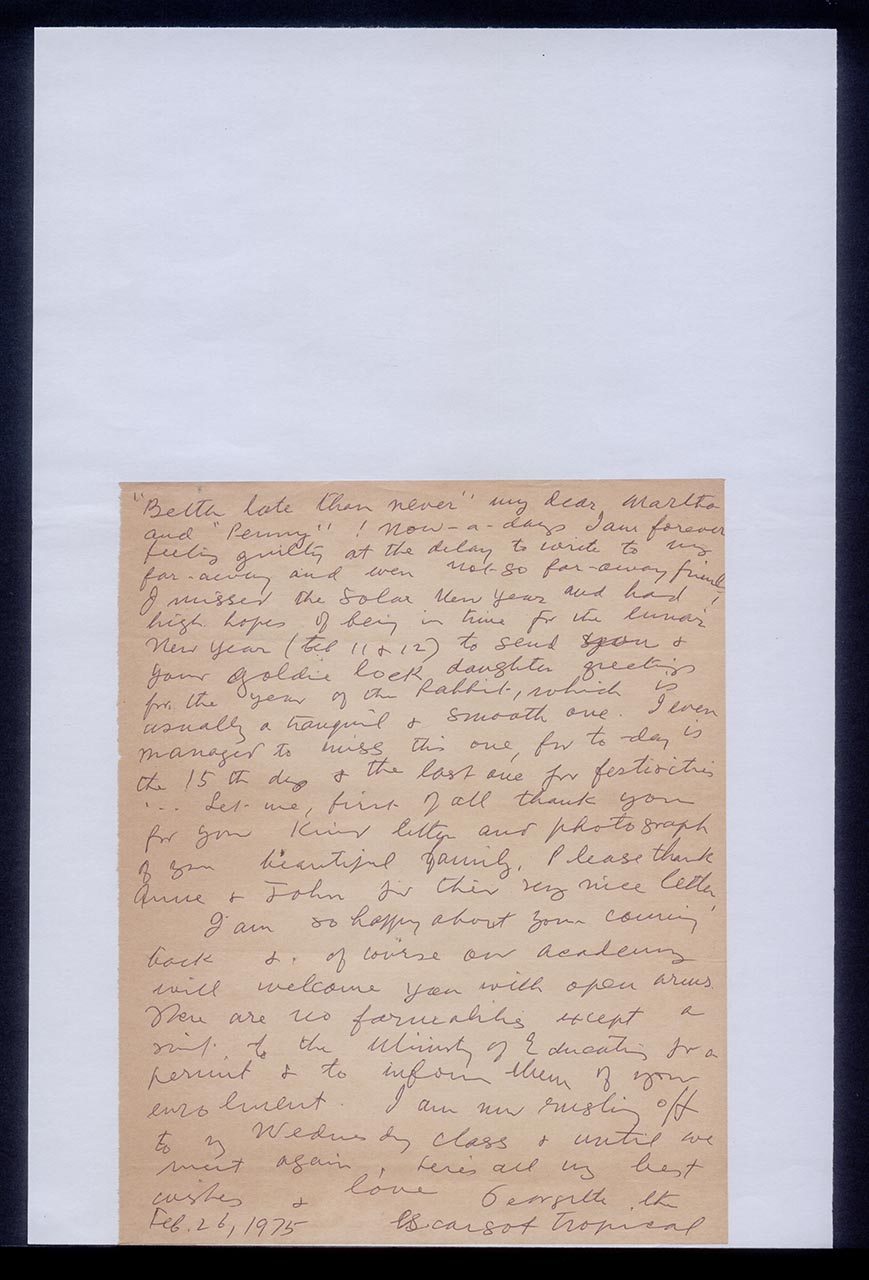 "Better late than never" my dear Martha
and "Penny"! Now-a-days I am forever
feeling guilty at the delay to write to my
far-away and even not-so far-away friends!
I missed the Solar New Year and had
high hopes of being in time for the lunar
New Year (Feb 11 & 12) to send you &
your goldie lock daughter greetings
for the year of the Rabbit, which is
usually a tranquil & smooth one. I even
managed to miss this one, for to-day is
the 15th day & the last one for festivities
... Let me, first of all thank you
for your kind letter and photograph
of your beautiful family. Please thank
Anne & John for their very nice letter.
I am so happy about your coming
back & of course our academy
will welcome you with open arms.
There are no formalities except a
visit to the Ministry of Education for a
permit & to inform them of your
enrolment. I am now rushing off
to my Wednesday class & until we
meet again, here's all my best
wishes & love Georgette the
Feb. 26, 1975 Escargot Tropical